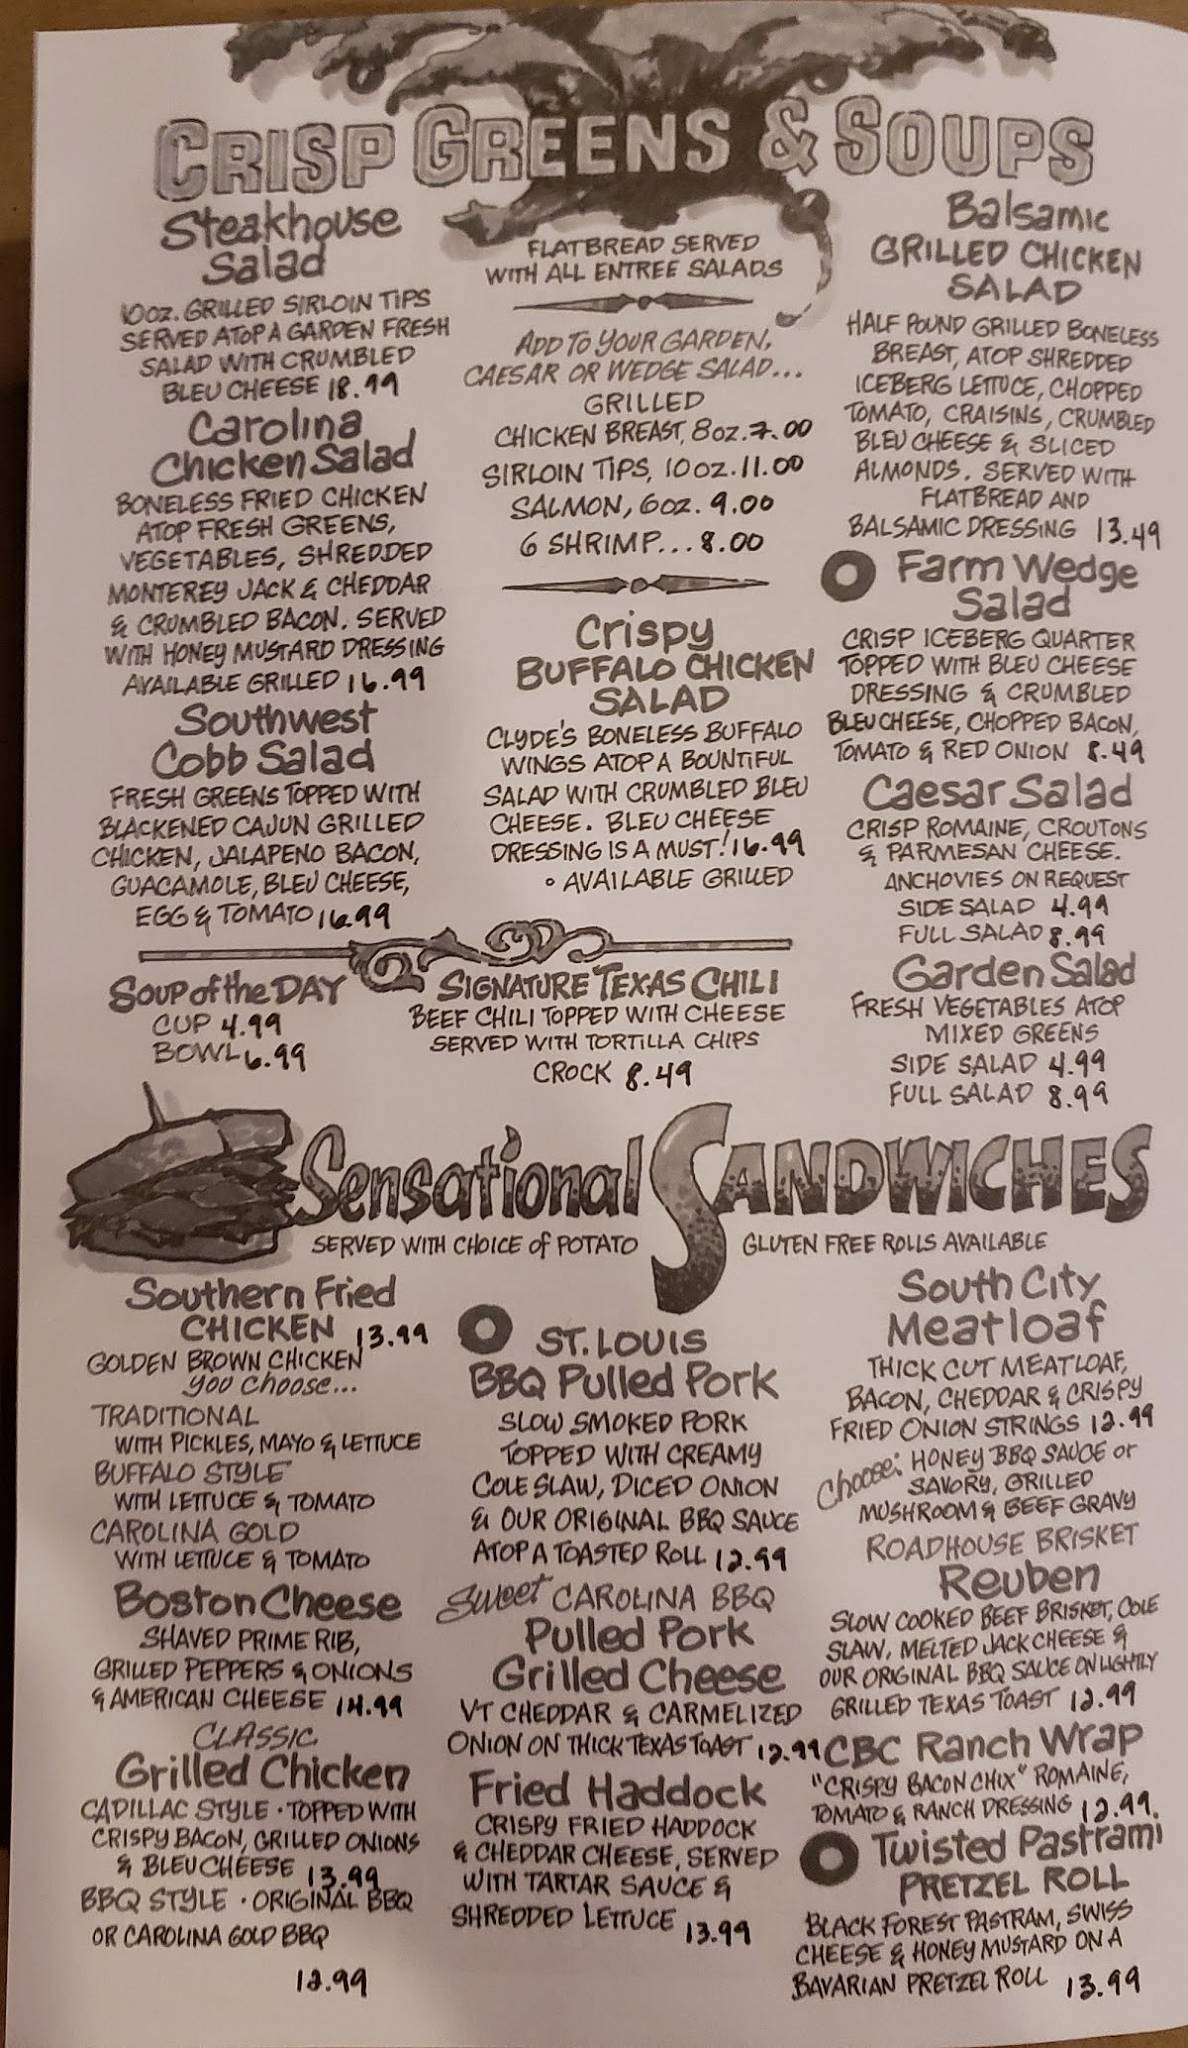 CRISP GREENS & SOUPS
Steakhouse
Salad
10OZ. GRILLED SIRLOIN TIPS
SERVED ATOP A GARDEN FRESH
SALAD WITH CRUMBLED
BLEU CHEESE 18.99
Carolina
Chicken Salad
BONELESS FRIED CHICKEN
ATOP FRESH GREENS,
VEGETABLES, SHREDDED
MONTEREY JACK & CHEDDAR
& CRUMBLED BACON. SERVED
WITH HONEY MUSTARD DRESSING
AVAILABLE GRILLED 16.99
Southwest
Cobb Salad
FRESH GREENS TOPPED WITH
BLACKENED CAJUN GRILLED
CHICKEN, JALAPENO BACON,
GUACAMOLE, BLEU CHEESE,
EGG & TOMATO 16.99
FLATBREAD SERVED
WITH ALL ENTREE SALADS
ADD TO YOUR GARDEN,
CAESAR OR WEDGE SALAD...
GRILLED
CHICKEN BREAST, 8OZ. 7.00
SIRLOIN TIPS, 10OZ. 11.00
SALMON, 6OZ. 9.00
6 SHRIMP... 8.00
Crispy
BUFFALO CHICKEN
SALAD
CLYDE'S BONELESS BUFFALO
WINGS ATOP A BOUNTIFUL
SALAD WITH CRUMBLED BLEU
CHEESE. BLEU CHEESE
DRESSING IS A MUST! 16.99
• AVAILABLE GRILLED
Balsamic
GRILLED CHICKEN
SALAD
HALF POUND GRILLED BONELESS
BREAST, ATOP SHREDDED
ICEBERG LETTUCE, CHOPPED
TOMATO, CRAISINS, CRUMBLED
BLEU CHEESE & SLICED
ALMONDS. SERVED WITH
FLATBREAD AND
BALSAMIC DRESSING 13.49
Farm Wedge
Salad
CRISP ICEBERG QUARTER
TOPPED WITH BLEU CHEESE
DRESSING & CRUMBLED
BLEU CHEESE, CHOPPED BACON,
TOMATO & RED ONION 8.49
Caesar Salad
CRISP ROMAINE, CROUTONS
& PARMESAN CHEESE.
ANCHOVIES ON REQUEST
SIDE SALAD 4.99
FULL SALAD 8.99
Garden Salad
FRESH VEGETABLES ATOP
MIXED GREENS
SIDE SALAD 4.99
FULL SALAD 8.99
Soup of the DAY
CUP 4.99
BOWL 6.99
SIGNATURE TEXAS CHILI
BEEF CHILI TOPPED WITH CHEESE
SERVED WITH TORTILLA CHIPS
CROCK 8.49
Sensational SANDWICHES
SERVED WITH CHOICE of POTATO
GLUTEN FREE ROLLS AVAILABLE
Southern Fried
CHICKEN 13.99
GOLDEN BROWN CHICKEN
you choose...
TRADITIONAL
WITH PICKLES, MAYO & LETTUCE
BUFFALO STYLE
WITH LETTUCE & TOMATO
CAROLINA GOLD
WITH LETTUCE & TOMATO
Boston Cheese
SHAVED PRIME RIB,
GRILLED PEPPERS & ONIONS
& AMERICAN CHEESE 14.99
CLASSIC
Grilled Chicken
CADILLAC STYLE • TOPPED WITH
CRISPY BACON, GRILLED ONIONS
& BLEU CHEESE 13.99
BBQ STYLE • ORIGINAL BBQ
OR CAROLINA GOLD BBQ
12.99
ST. LOUIS
BBQ Pulled Pork
SLOW SMOKED PORK
TOPPED WITH CREAMY
COLE SLAW, DICED ONION
& OUR ORIGINAL BBQ SAUCE
ATOP A TOASTED ROLL 12.99
Sweet CAROLINA BBQ
Pulled Pork
Grilled Cheese
VT CHEDDAR & CARMELIZED
ONION ON THICK TEXAS TOAST 12.99
Fried Haddock
CRISPY FRIED HADDOCK
& CHEDDAR CHEESE, SERVED
WITH TARTAR SAUCE &
SHREDDED LETTUCE 13.99
South City
Meatloaf
THICK CUT MEATLOAF,
BACON, CHEDDAR & CRISPY
FRIED ONION STRINGS 12.99
Choose: HONEY BBQ SAUCE or
SAVORY, GRILLED
MUSHROOM & BEEF GRAVY
ROADHOUSE BRISKET
Reuben
SLOW COOKED BEEF BRISKET, COLE
SLAW, MELTED JACK CHEESE &
OUR ORIGINAL BBQ SAUCE ON LIGHTLY
GRILLED TEXAS TOAST 12.99
CBC Ranch Wrap
"CRISPY BACON CHIX" ROMAINE,
TOMATO & RANCH DRESSING 12.99.
Twisted Pastrami
PRETZEL ROLL
BLACK FOREST PASTRAM, SWISS
CHEESE & HONEY MUSTARD ON A
BAVARIAN PRETZEL ROLL 13.99